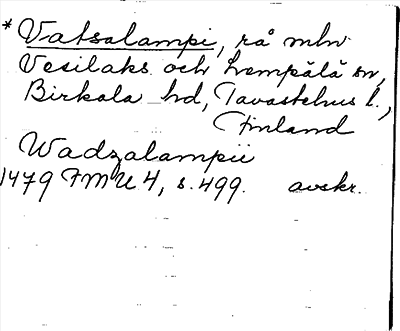 * Vatsalampi, rå mln
Vesilaks och Lempälä sn,
Birkala hd, Tavastehus l.,
Finland
Wadzalampii
1479 FMU 4, s. 499. avskr.